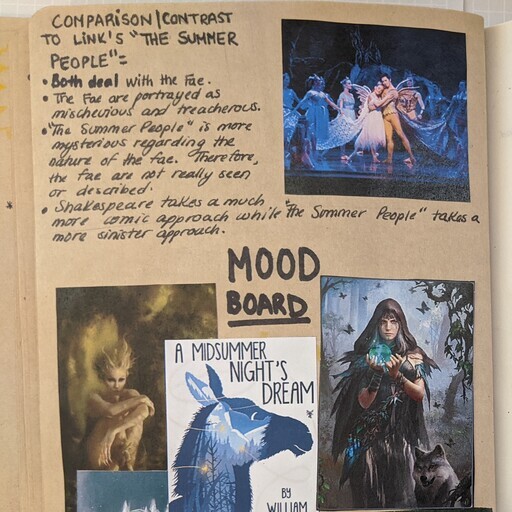 COMPARISON/CONTRAST
TO LINK'S "THE SUMMER
PEOPLE"=
• Both deal with the Fae.
• The Fae are portrayed as
mischevious and treacherous.
• "The Summer People" is more
mysterious regarding the
nature of the fae. Therefore,
the fae are not really seen
or described.
• Shakespeare takes a much
more comic approach while "The Summer People" takes a
more sinister approach.
MOOD
BOARD
A MIDSUMMER
NIGHT'S
DREAM
BY
WILLIAM